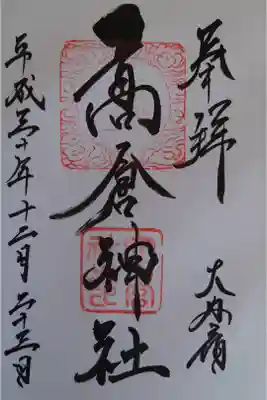 奉拝
大内宿
高倉神社
平成三十年十二月二十三日